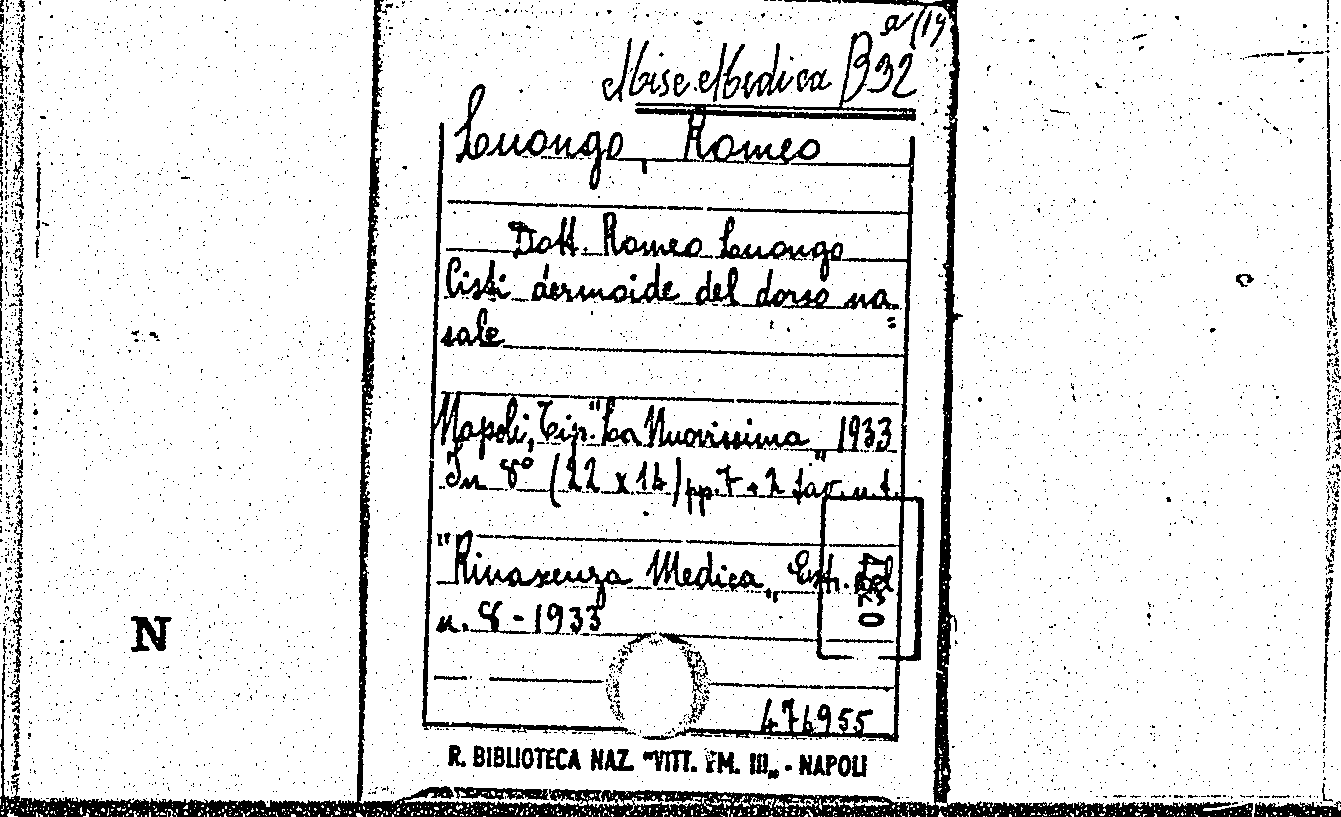 Misc. Medica B 32
a/(19
Luongo, Romeo
Dott. Romeo Luongo
Cisti dermoide del dorso na=
sale
Napoli, Tip. "La Nuovissima„ 1933
In 8° (22 x 14) pp. 7 + 2 tav. n.t.
"Rinascenza Medica„ Estr. del
n. 8 - 1933
N
474955
R. BIBLIOTECA NAZ. "VITT. EM. III„ - NAPOLI